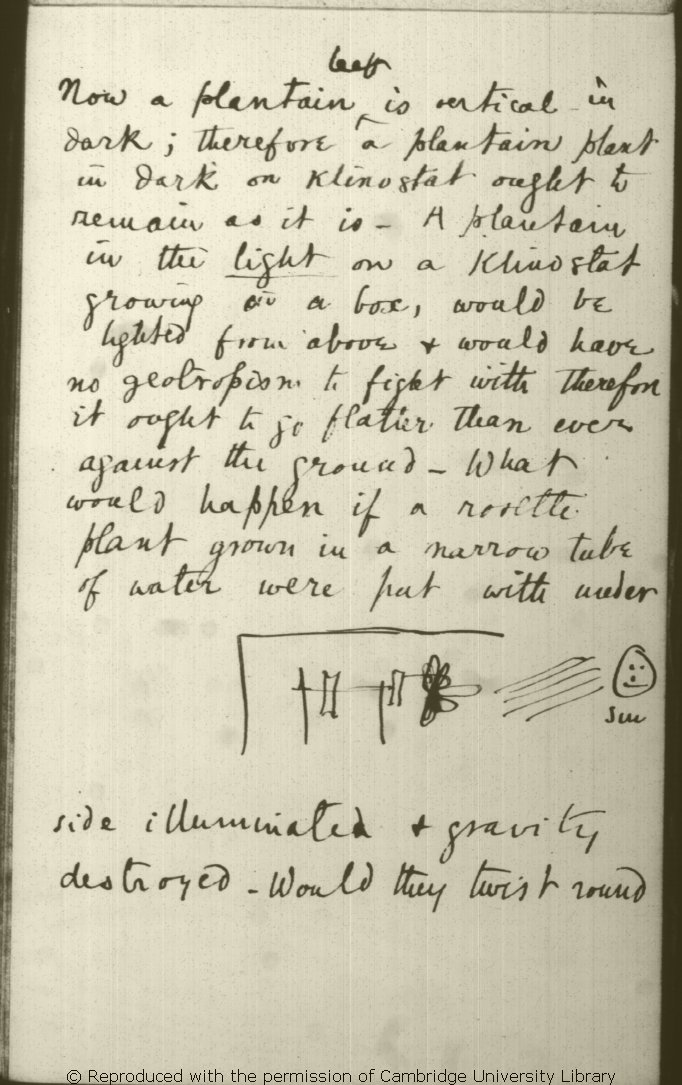 leaf
Now a plantain ^ is vertical in
dark; therefore a plantain plant
in dark on Klinostat ought to
remain as it is – A plantain
in the light on a Klinostat
growing in a box, would be
lighted from above & would have
no geotropism to fight with therefore
it ought to go flatter than ever
against the ground – What
would happen if a rosette
plant grown in a narrow tube
of water were put with under
Sun
side illuminated & gravity
destroyed – Would they twist round
© Reproduced with the permission of Cambridge University Library